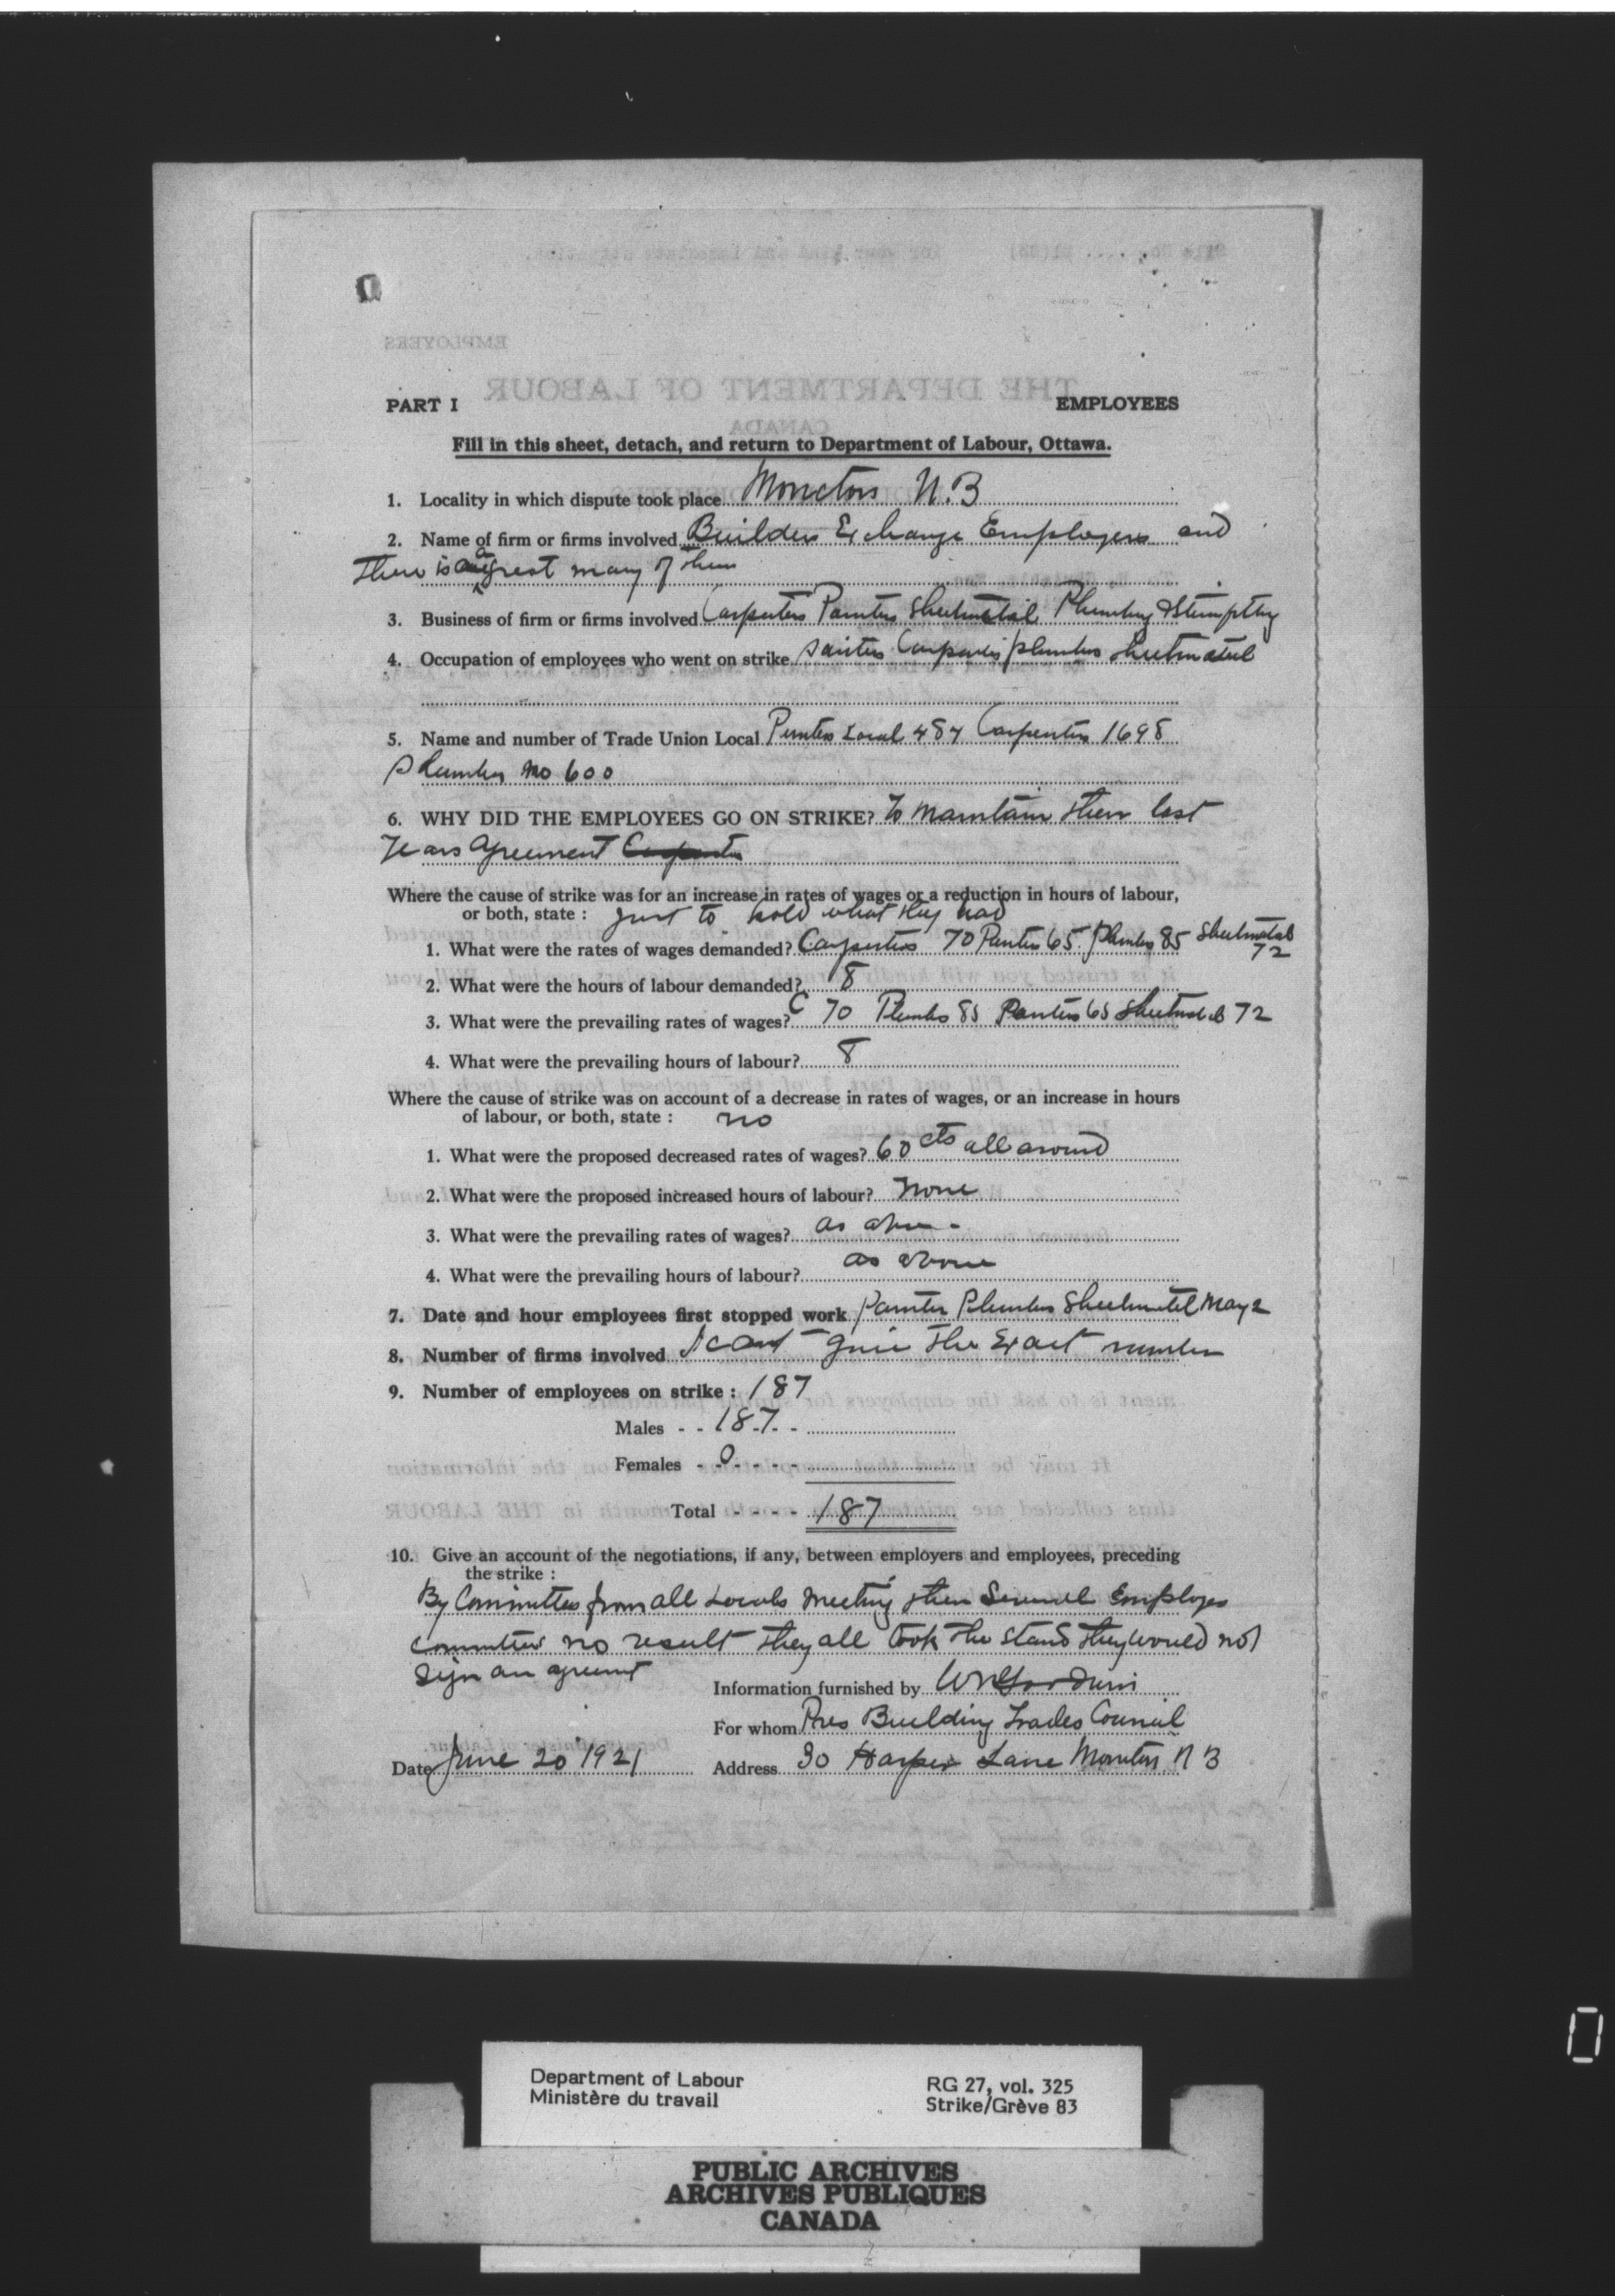 PART I
EMPLOYEES
Fill in this sheet, detach, and return to Department of Labour, Ottawa.
1. Locality in which dispute took place Moncton N.B
2. Name of firm or firms involved Builders Exchange Employers and
There is a great many of them
3. Business of firm or firms involved Carpenters Painters Sheetmetal Plumbing &
4. Occupation of employees who went on strike Painters Carpenters plumbers sheetmetal
5. Name and number of Trade Union Local Painters Local 487 Carpenters 1698
Plumbers No 600
6. WHY DID THE EMPLOYEES GO ON STRIKE? To maintain their last
Years Agreement
Where the cause of strike was for an increase in rates of wages or a reduction in hours of labour,
or both, state : Just to hold what they had
1. What were the rates of wages demanded? Carpenters 70 Painters 65 plumbers 85 Sheetmetal
72
2. What were the hours of labour demanded? 8
3. What were the prevailing rates of wages? C 70 Plumbers 85 Painters 65 Sheetmetal 72
4. What were the prevailing hours of labour? 8
Where the cause of strike was on account of a decrease in rates of wages, or an increase in hours
of labour, or both, state : no
1. What were the proposed decreased rates of wages? 60 cts all around
2. What were the proposed increased hours of labour? None
3. What were the prevailing rates of wages? as above
4. What were the prevailing hours of labour? as above
7. Date and hour employees first stopped work Painters Plumbers Sheetmetel May 2
8. Number of firms involved I cant give the Exact number
9. Number of employees on strike : 187
Males - - 187 - -
Females - 0 - - -
Total - - - - 187
10. Give an account of the negotiations, if any, between employers and employees, preceding
the strike :
By Committees from all Locals Meeting then Several Employes
committees no result They all took the stand they would not
sign an
Information furnished by
For whom Pres Building Trades Council
Date June 20 1921
Address 30 Harper Lane Moncton N B
Department of Labour
Ministère du travail
RG 27, vol. 325
Strike/Grève 83
PUBLIC ARCHIVES
ARCHIVES PUBLIQUES
CANADA